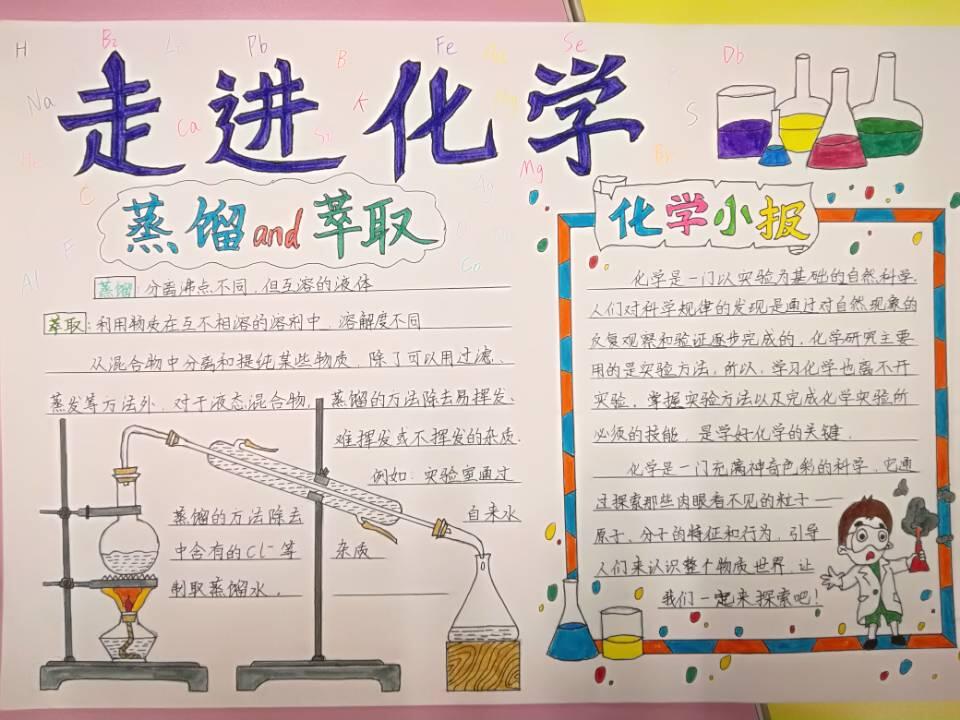 H
B₂
Li
Pb
B
Fe
Se
Db
Na
Ca
K
S
Mg
Br
C
Ag
F
Al
Co
走进化学
蒸馏and萃取
蒸馏 分离沸点不同,但互溶的液体
萃取:利用物质在互不相溶的溶剂中,溶解度不同
从混合物中分离和提纯某些物质,除了可以用过滤、
蒸发等方法外,对于液态混合物,蒸馏的方法除去易挥发、
难挥发或不挥发的杂质.
例如:实验室通过
蒸馏的方法除去 自来水
中含有的Cl⁻等 杂质
制取蒸馏水.
化学小报
化学是一门以实验为基础的自然科学.
人们对科学规律的发现是通过对自然现象的
反复观察和验证逐步完成的,化学研究主要
用的是实验方法,所以,学习化学也离不开
实验,掌握实验方法以及完成化学实验所
必须的技能,是学好化学的关键.
化学是一门充满神奇色彩的科学,它通
过探索那些肉眼看不见的粒子——
原子、分子的特征和行为,引导
人们来认识整个物质世界,让
我们一起来探索吧!